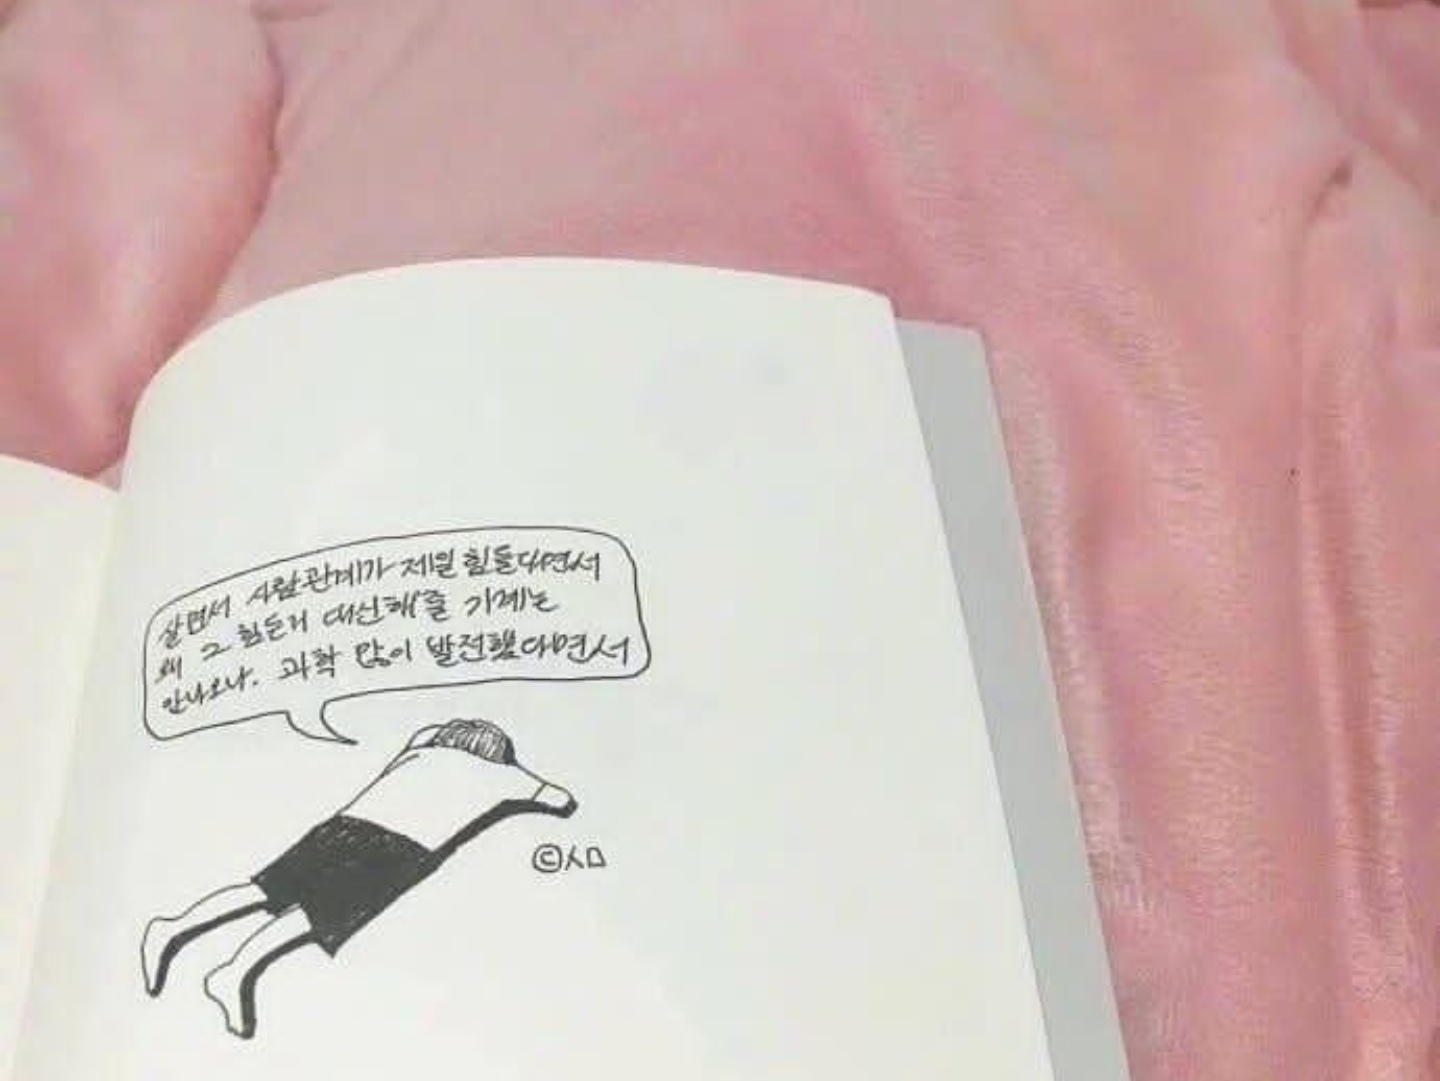 살면서 사람관계가 제일 힘들다면서
왜 그 힘든거 대신해줄 기계는
안나오나. 과학 많이 발전했다면서
©ㅅㅁ